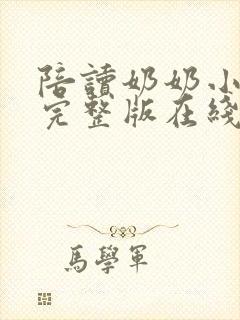 陪讀奶奶小
完整版在綫
馬學軍